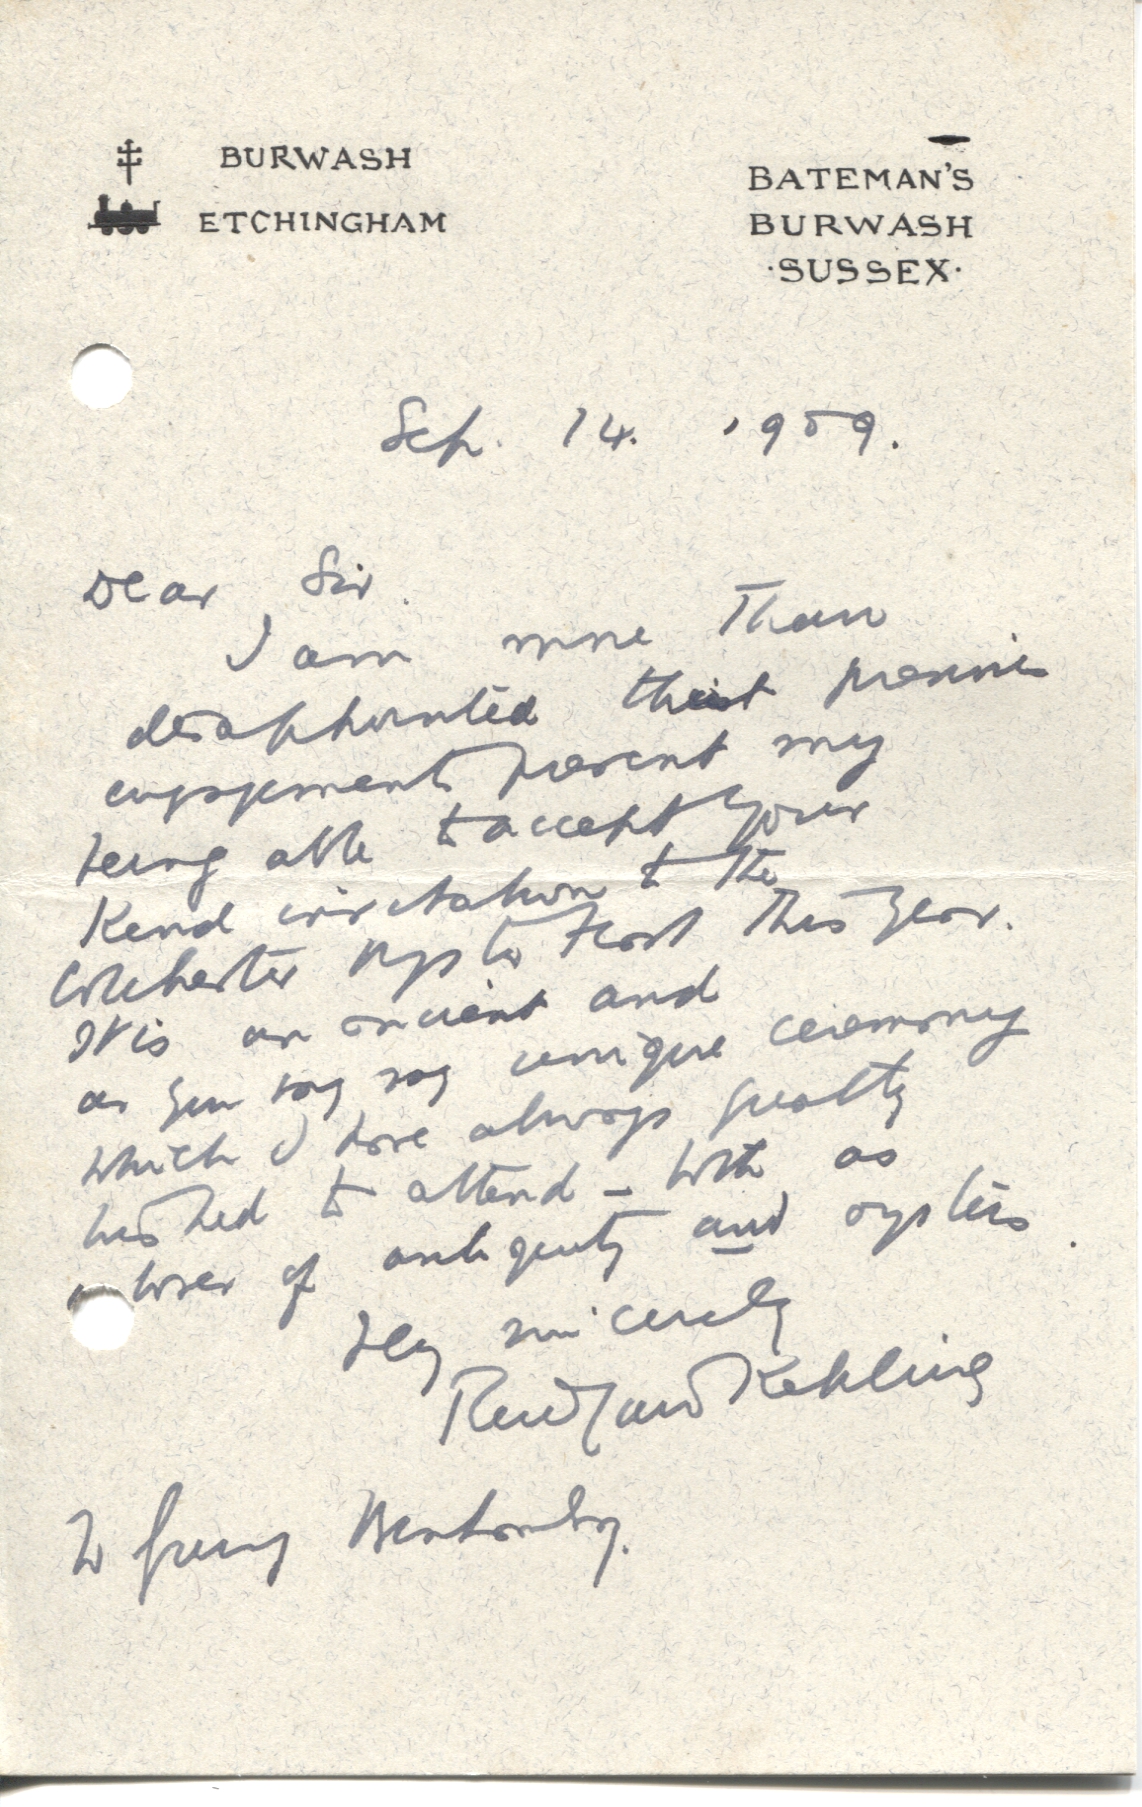 BURWASH
ETCHINGHAM
BATEMAN'S
BURWASH
·SUSSEX·
Sep. 14. 1909.
Dear Sir.
I am more than
disappointed that previous
engagements prevent my
being able to accept your
kind invitation to the
Colchester Oyster Feast this year.
It is an ancient and
as you say unique ceremony
which I have always greatly
wished to attend – both as
a lover of antiquity and oysters.
Very sincerely
Rudyard Kipling